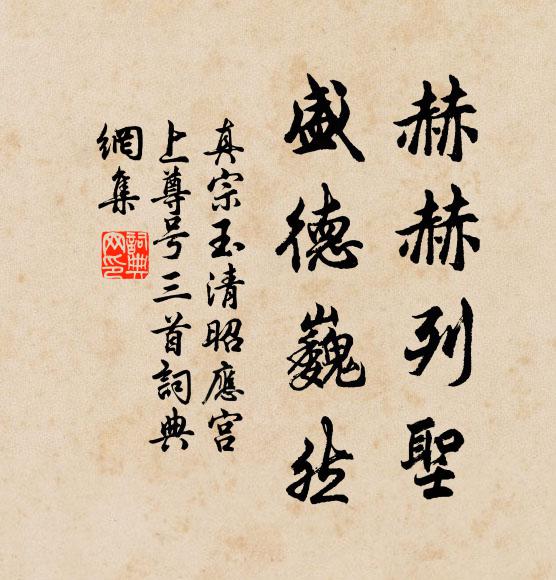 赫赫列聖
盛德巍然
真宗玉清昭應宮
上尊号三首詞典
網集
詞典
网印